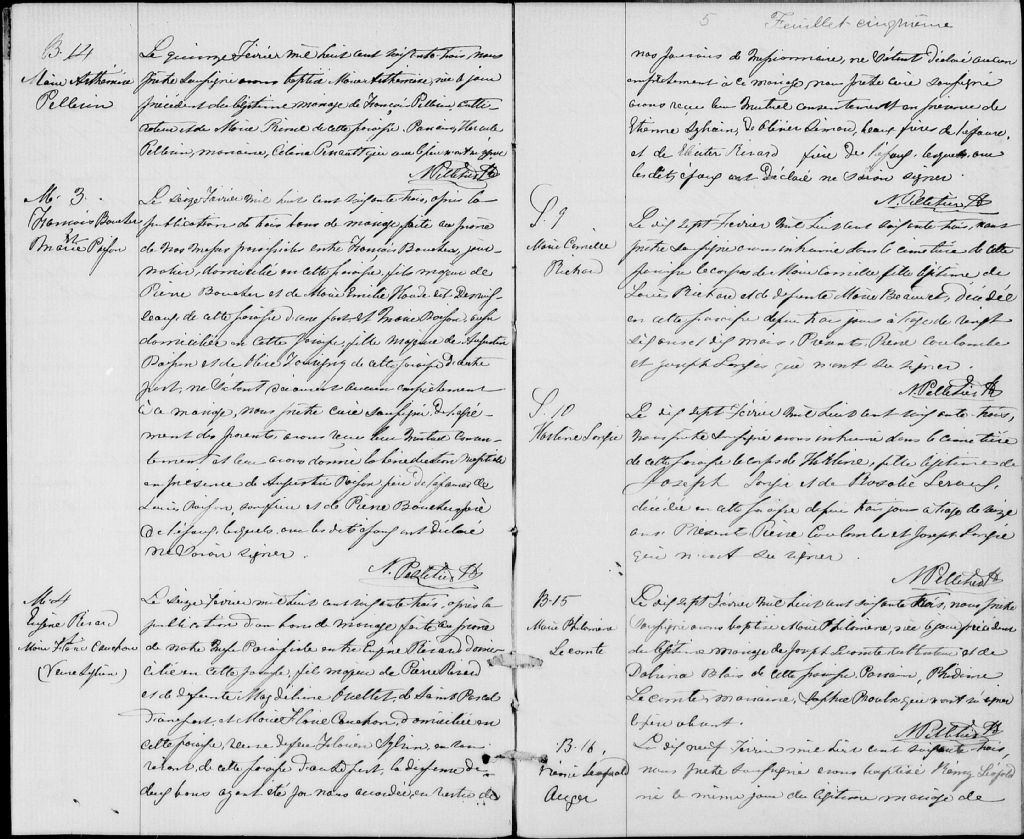 B 14
Marie Arthémise
Pellerin
Le quinze Février mil huit cent soixante trois, nous
prêtre soussigné avons baptisé Marie Arthémise, née le jour
précédent du légitime mariage de François Pellerin culti-
vateur et de Marie de cette paroisse. Parrain, Hercule
Pellerin, marraine, Célina qui avec le père n'ont su signer
N. Pelletier Ptr
M. 3.
François Boucher
et
Marie Poisson
Le seize Février mil huit cent soixante trois, après la
publication de trois bans de mariage, faite au prône
de nos messes paroissiales entre François Boucher, jour-
nalier, domicilié en cette paroisse, fils majeur de
Pierre Boucher et de Marie Emilie Houde et
de cette paroisse d'une part, et Marie Poisson, aussi
domiciliée en cette paroisse, fille majeure de Augustin
Poisson et de de cette paroisse d'autre
part, ne s'étant découvert aucun empêchement
à ce mariage, nous prêtre curé soussigné, du
ment des parents, avons reçu leur mutuel consen-
tement et leur avons donné la bénédiction nuptiale
en présence de Augustin Poisson, père de l'épouse de
Louis Poisson, son frère et de Pierre Boucher père
de l'époux, lesquels, avec les dits époux ont déclaré
ne savoir signer.
N. Pelletier Ptr
M. 4
Eugène Richard
Marie Flavie Cauchon
(Veuve Sylvain)
Le seize Février mil huit cent soixante trois, après la
publication d'un ban de mariage faite au prône
de notre Messe Paroissiale entre Eugène Richard domi-
cilié en cette paroisse, fils majeur de Pierre Richard
et de défunte Magdeleine Ouellet, de Saint Pascal
d'une part, et Marie Flavie Cauchon, domiciliée en
cette paroisse, veuve de feu Sylvain, en son
vivant, de cette paroisse d'autre part, la dispense de
deux bans ayant été par nous accordée, en vertu de
5 Feuillet cinquième
nos pouvoirs de Missionnaire, ne s'étant déclaré aucun
empêchement à ce mariage, nous prêtre curé soussigné
avons reçu leur mutuel consentement en présence de
Etienne Sylvain, de Olivier Simard, beaux frères de l'épouse,
et de Richard frère de l'époux lesquels, avec
les dits époux ont déclaré ne savoir signer.
N. Pelletier Ptr
S. 9
Marie Camille
Richard
Le dix sept Février mil huit cent soixante trois, nous
prêtre soussigné avons inhumé dans le cimetière de cette
paroisse le corps de Marie Camille fille légitime de
Louis Richard et de défunte Marie décédée
en cette paroisse depuis trois jours à l'age de vingt
six ans et dix mois. Présents, Pierre Coulombe
et Joseph qui n'ont su signer.
N. Pelletier Ptr
S. 10
Le dix sept Février mil huit cent soixante trois,
nous prêtre soussigné avons inhumé dans le cimetière
de cette paroisse le corps de fille légitime de
Joseph et de Rosalie
décédée en cette paroisse depuis trois jours à l'age de seize
ans. Présent, Pierre Coulombe et Joseph
qui n'ont su signer.
N. Pelletier Ptr
B. 15
Marie Philomène
Lecomte
Le dix sept Février mil huit cent soixante trois, nous prêtre
soussigné avons baptisé Marie Philomène, née le jour précédent
du légitime mariage de Joseph Lecomte cultivateur et de
Delvina Blais de cette paroisse Parrain,
Lecomte, marraine, Sophie Proulx, qui n'ont su signer
le père absent.
N. Pelletier Ptr
B. 16.
Rémie Léopold
Auger
Le dix neuf Février mil huit cent soixante trois,
nous prêtre soussigné avons baptisé Rémy Léopold
né le même jour du légitime mariage de